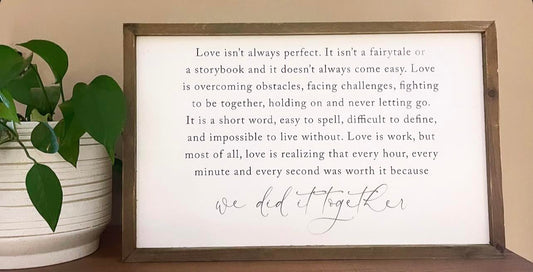 Love isn't always perfect. It isn't a fairytale or
a storybook and it doesn't always come easy. Love
is overcoming obstacles, facing challenges, fighting
to be together, holding on and never letting go.
It is a short word, easy to spell, difficult to define,
and impossible to live without. Love is work, but
most of all, love is realizing that every hour, every
minute and every second was worth it because
we did it together